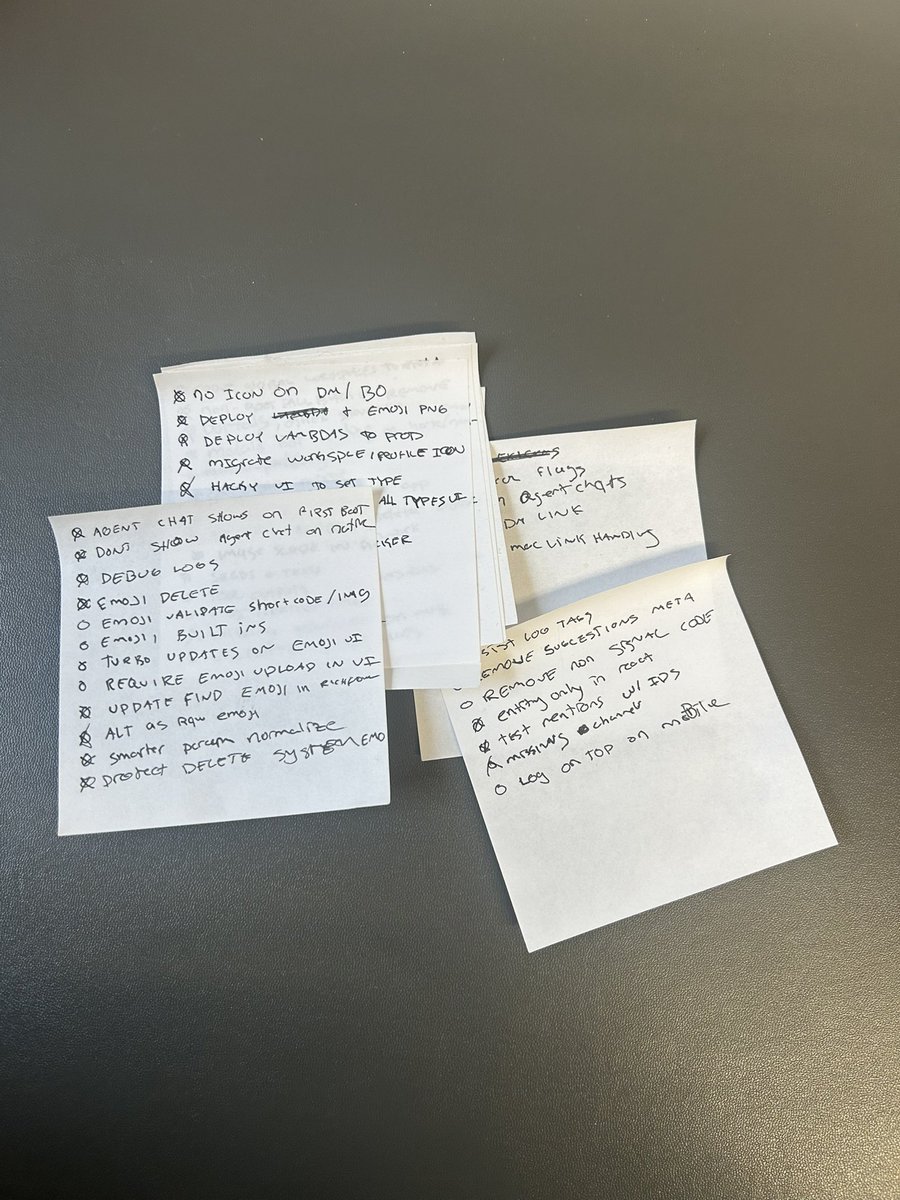 NO ICON ON DM/BO
DEPLOY + EMOJI PNG
DEPLOY LAMBDAS TO PROD
MIGRATE WORKSPCE/PROFILE ICON
HACKY UI TO SET TYPE
ALL TYPES UI
CKER
AGENT CHAT SHOWS ON FIRST BOOT
DONT SHOW Agent Chat on native
DEBUG LOGS
EMOJI DELETE
EMOJI VALIDATE Shortcode/IMG
EMOJI, BUILT INS
TURBO UPDATES ON EMOJI UI
REQUIRE EMOJI UPLOAD IN UI
UPDATE FIND EMOJI in
ALT as Raw emoji
smarter param normalize
protect DELETE SYSTEM EMO
flags
n Agent chats
DM LINK
mac LINK HANDLING
LOG TAGS
REMOVE SUGGESTIONS META
REMOVE NON SIGNAL CODE
entity only in react
test mentions w/ IDS
missing channel
LOG ON TOP ON moBile